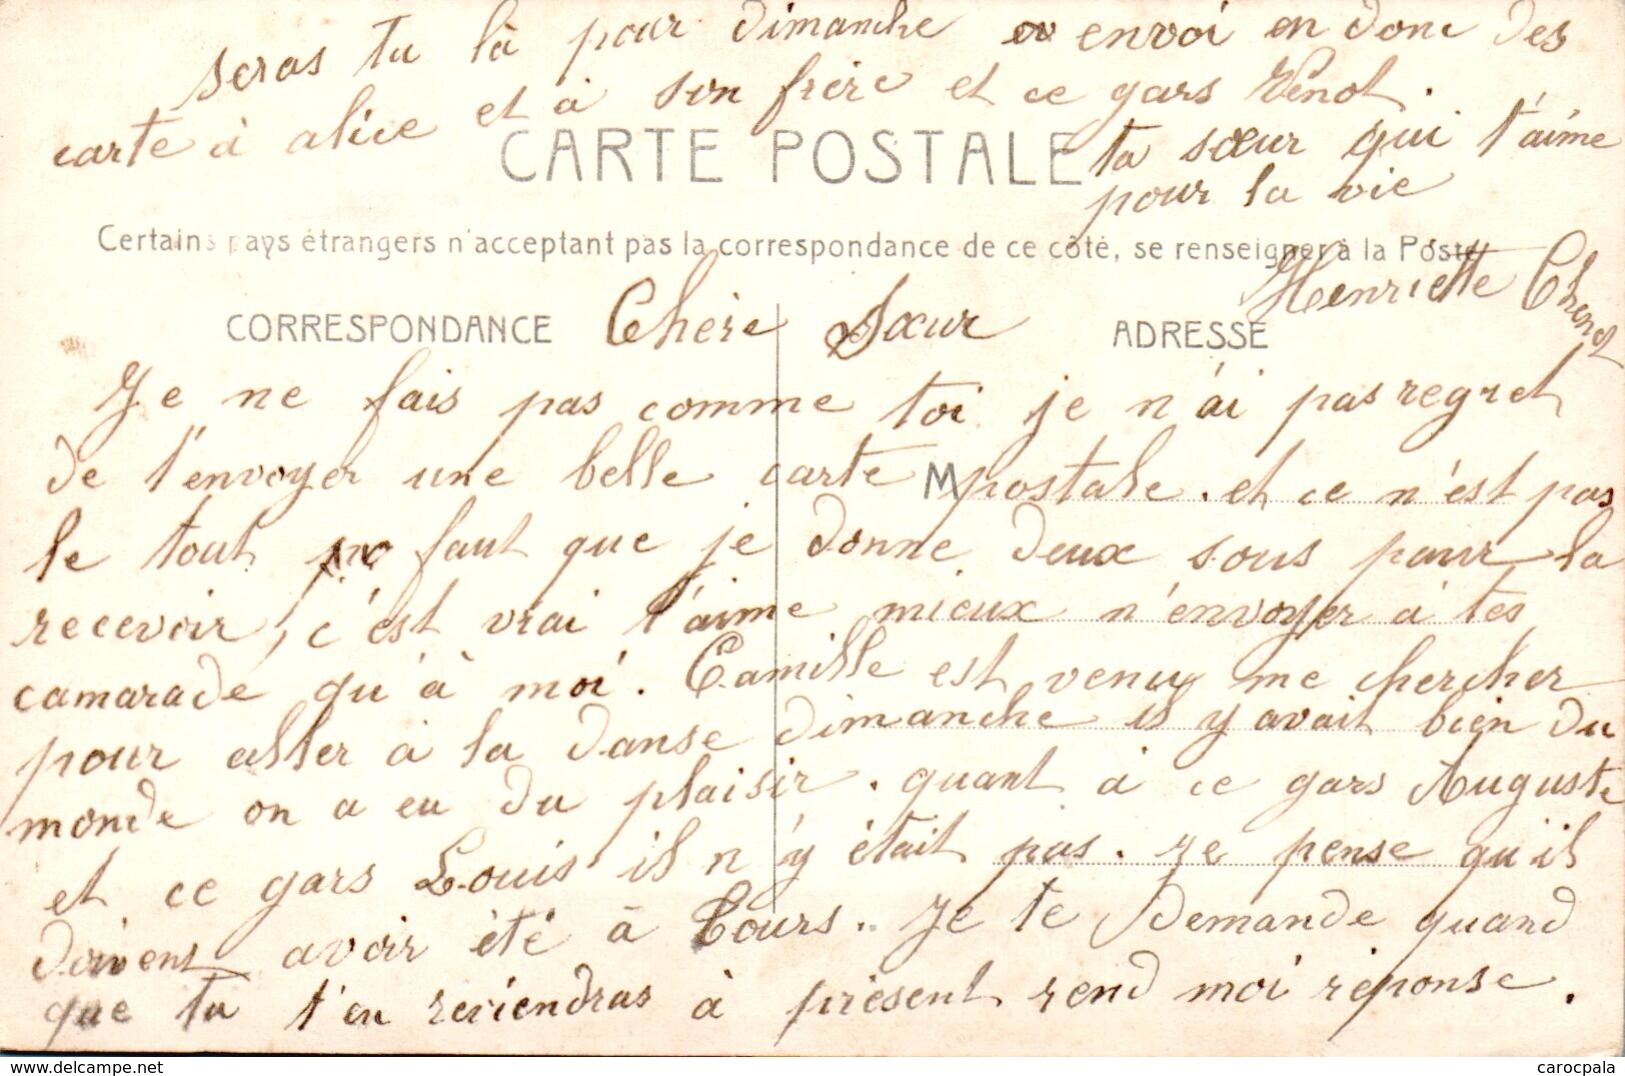 seras tu là pour dimanche envoi en donc des
carte à alice et à son frère et ce gars Venot.
ta sœur qui t'aime
pour la vie
Henriette Chenot
CARTE POSTALE
Certains pays étrangers n'acceptant pas la correspondance de ce côté, se renseigner à la Poste
CORRESPONDANCE
ADRESSE
Chère Sœur
Je ne fais pas comme toi je n'ai pas regret
de t'envoyer une belle carte M postale. et ce n'est pas
le tout faut que je donne deux sous pour la
recevoir, c'est vrai t'aime mieux n'envoyer à tes
camarade qu'à moi. Camille est venu me chercher
pour aller à la danse dimanche il y avait bien du
monde on a eu du plaisir. quant à ce gars Auguste
et ce gars Louis il n'y était pas. Je pense qu'il
doivent avoir été à Tours. Je te demande quand
que tu t'en reviendras à présent rend moi réponse.
www.delcampe.net
carocpala